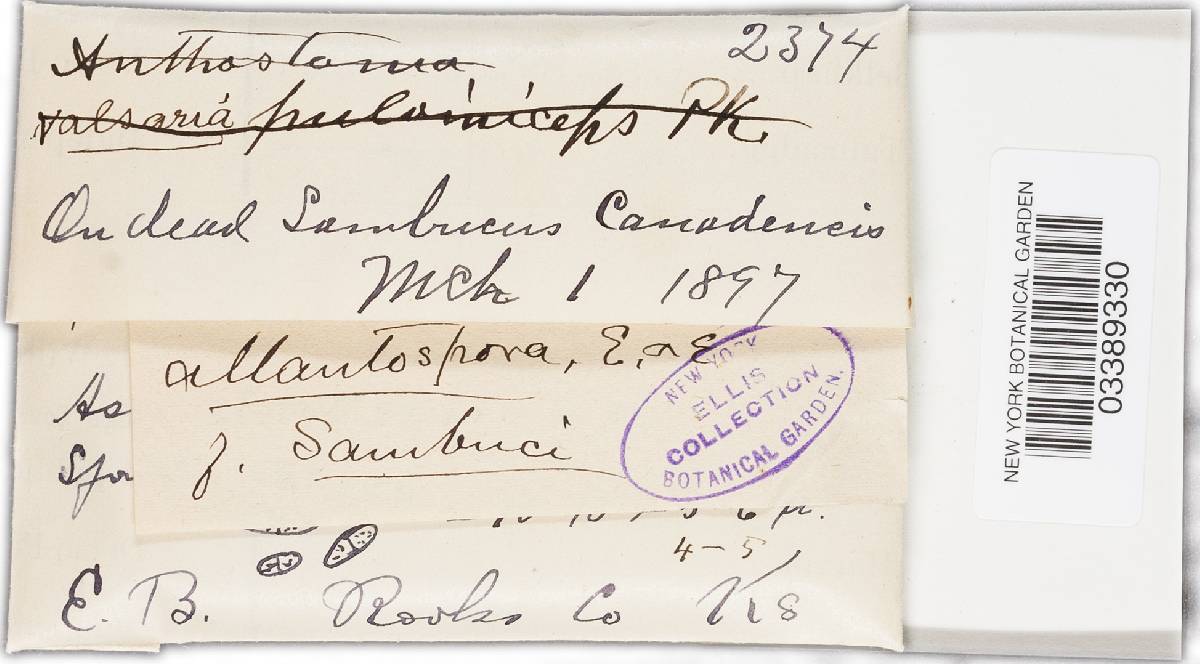 2374
Anthostoma
Valsaria pulviniceps PK.
On dead Sambucus Canadencis
Mch 1 1897
allantospora, E, & E
f. Sambuci
As
Spo
6 µ.
4-5
E. B. Rooks Co Ks
NEW YORK
ELLIS
COLLECTION
BOTANICAL GARDEN.
NEW YORK BOTANICAL GARDEN
03389330